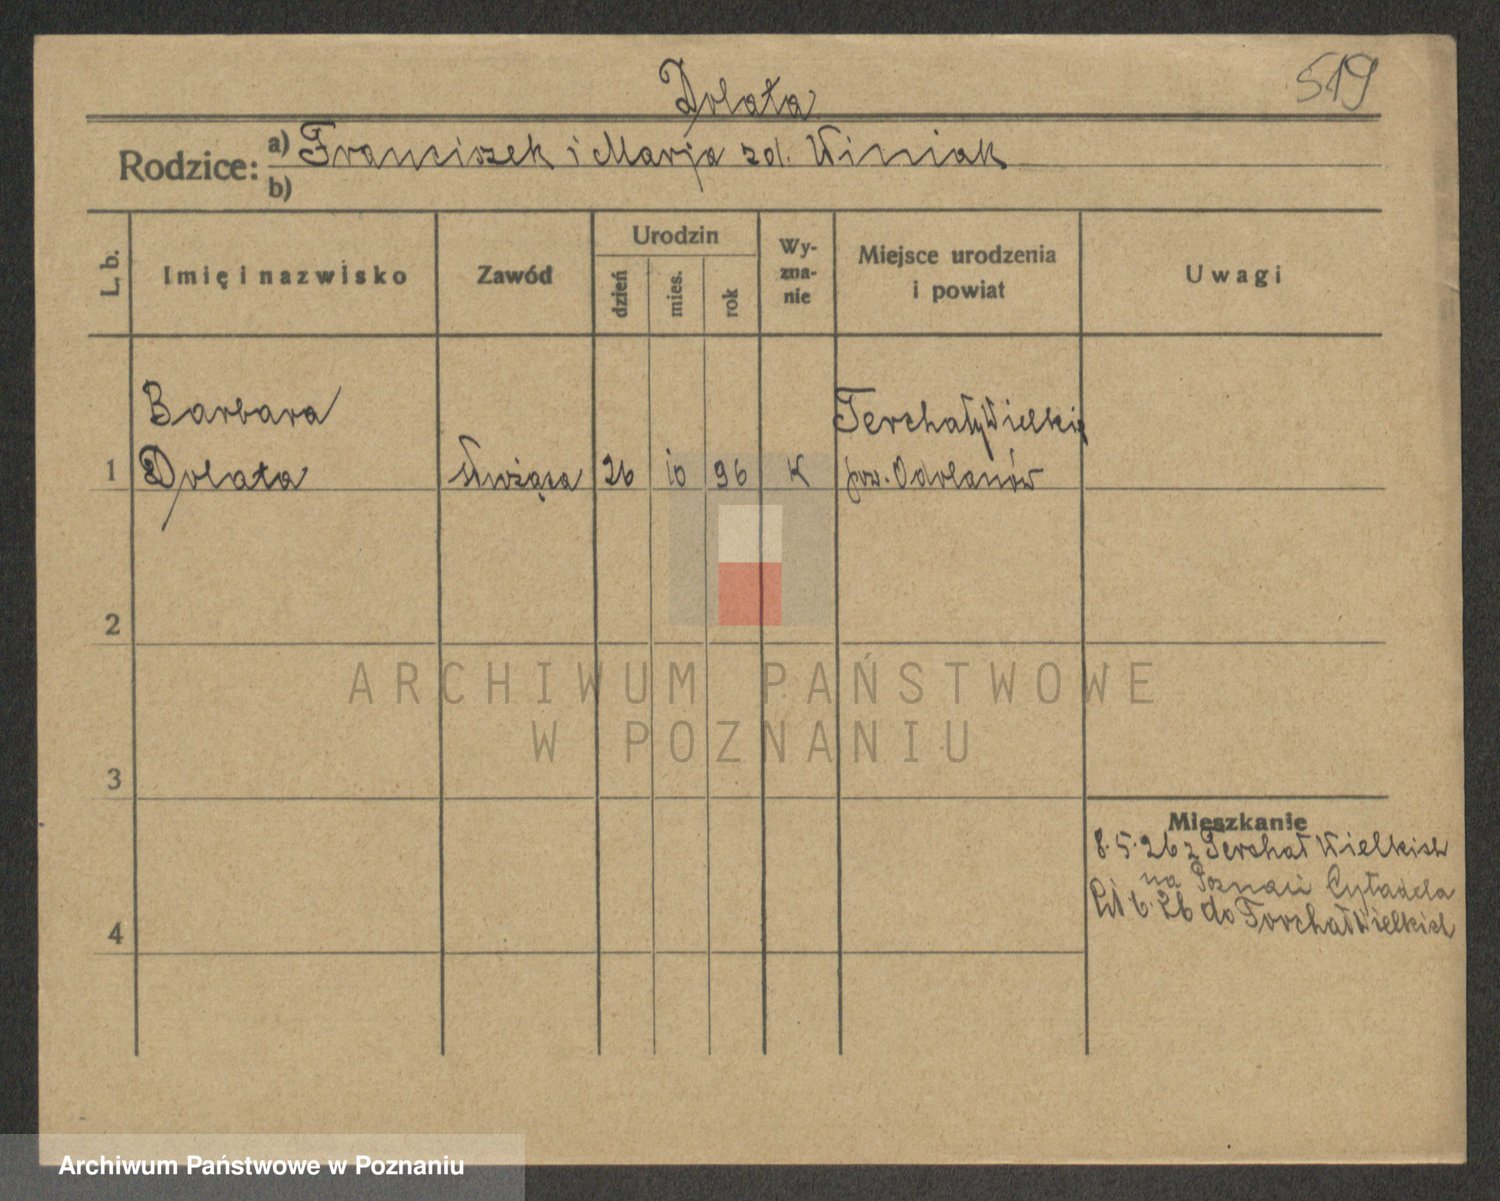 519
Dolata
Rodzice: a) Franciszek i Marja zd. Winiak
b)
L. b.
Imię i nazwisko
Zawód
Urodzin
dzień
mies.
rok
Wy-
zna-
nie
Miejsce urodzenia
i powiat
Uwagi
Barbara
Dolata
służąca
26
10
96
K
Terchały Wielkie
pow. Odolanów
1
2
3
4
Mieszkanie
8.5.26 z Terchał Wielkich
na Poznań Cytadela
6.26 do Torchał Wielkich
ARCHIWUM PAŃSTWOWE
W POZNANIU
Archiwum Państwowe w Poznaniu